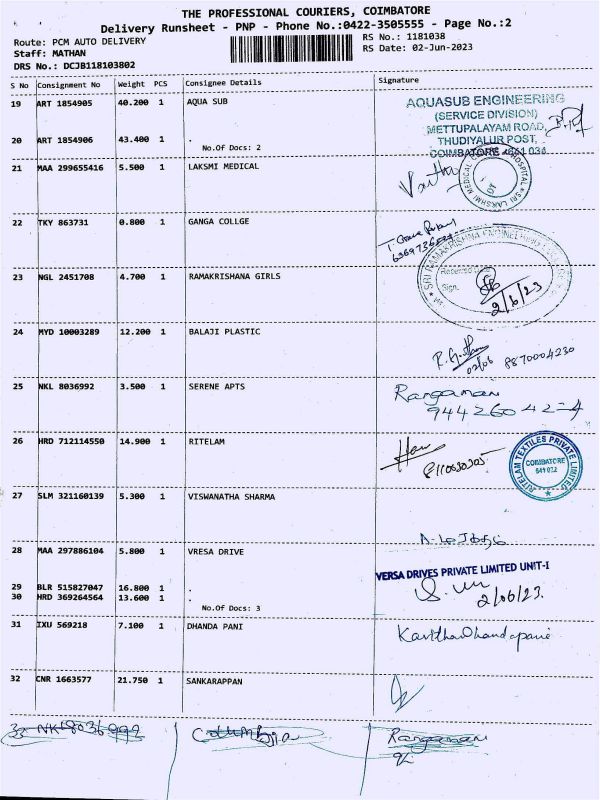 THE PROFESSIONAL COURIERS, COIMBATORE
Delivery Runsheet - PNP - Phone No.:0422-3505555 - Page No.:2
Route: PCM AUTO DELIVERY
RS No.: 1181038
Staff: MATHAN
RS Date: 02-Jun-2023
DRS No.: DCJB118103802
S No Consignment No Weight PCS Consignee Details Signature
19 ART 1854905 40.200 1 AQUA SUB
AQUASUB ENGINEERING
(SERVICE DIVISION)
METTUPALAYAM ROAD,
THUDIYALUR POST,
COIMBATORE - 641 034
20 ART 1854906 43.400 1 .
No.Of Docs: 2
21 MAA 299655416 5.500 1 LAKSMI MEDICAL
22 TKY 863731 0.800 1 GANGA COLLGE
23 NGL 2451708 4.700 1 RAMAKRISHANA GIRLS
SRI RAMAKRISHNA ENGINEERING
Sign.
2/6/23
24 MYD 10003289 12.200 1 BALAJI PLASTIC
02/06 8870004230
25 NKL 8036992 3.500 1 SERENE APTS
Rangamani
26 HRD 712114550 14.900 1 RITELAM
RITELAM TEXTILES PRIVATE LIMITED
COIMBATORE
27 SLM 321160139 5.300 1 VISWANATHA SHARMA
28 MAA 297886104 5.800 1 VRESA DRIVE
VERSA DRIVES PRIVATE LIMITED UNIT-I
2/06/23.
29 BLR 515827047 16.800 1 .
30 HRD 369264564 13.600 1 .
No.Of Docs: 3
31 IXU 569218 7.100 1 DHANDA PANI
32 CNR 1663577 21.750 1 SANKARAPPAN